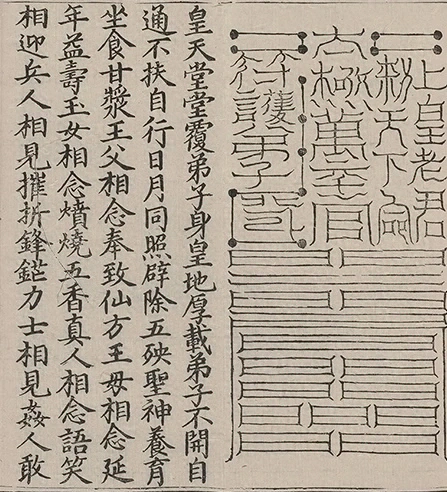 上皇老君
天下
太極萬
符護弟子
皇天堂堂覆弟子身皇地厚載弟子不開自
通不扶自行日月同照辟除五殃聖神養育
坐食甘漿王父相念奉致仙方王母相念延
年益壽玉女相念燌燒五香真人相念語笑
相迎兵人相見摧折鋒鋩力士相見姦人敢